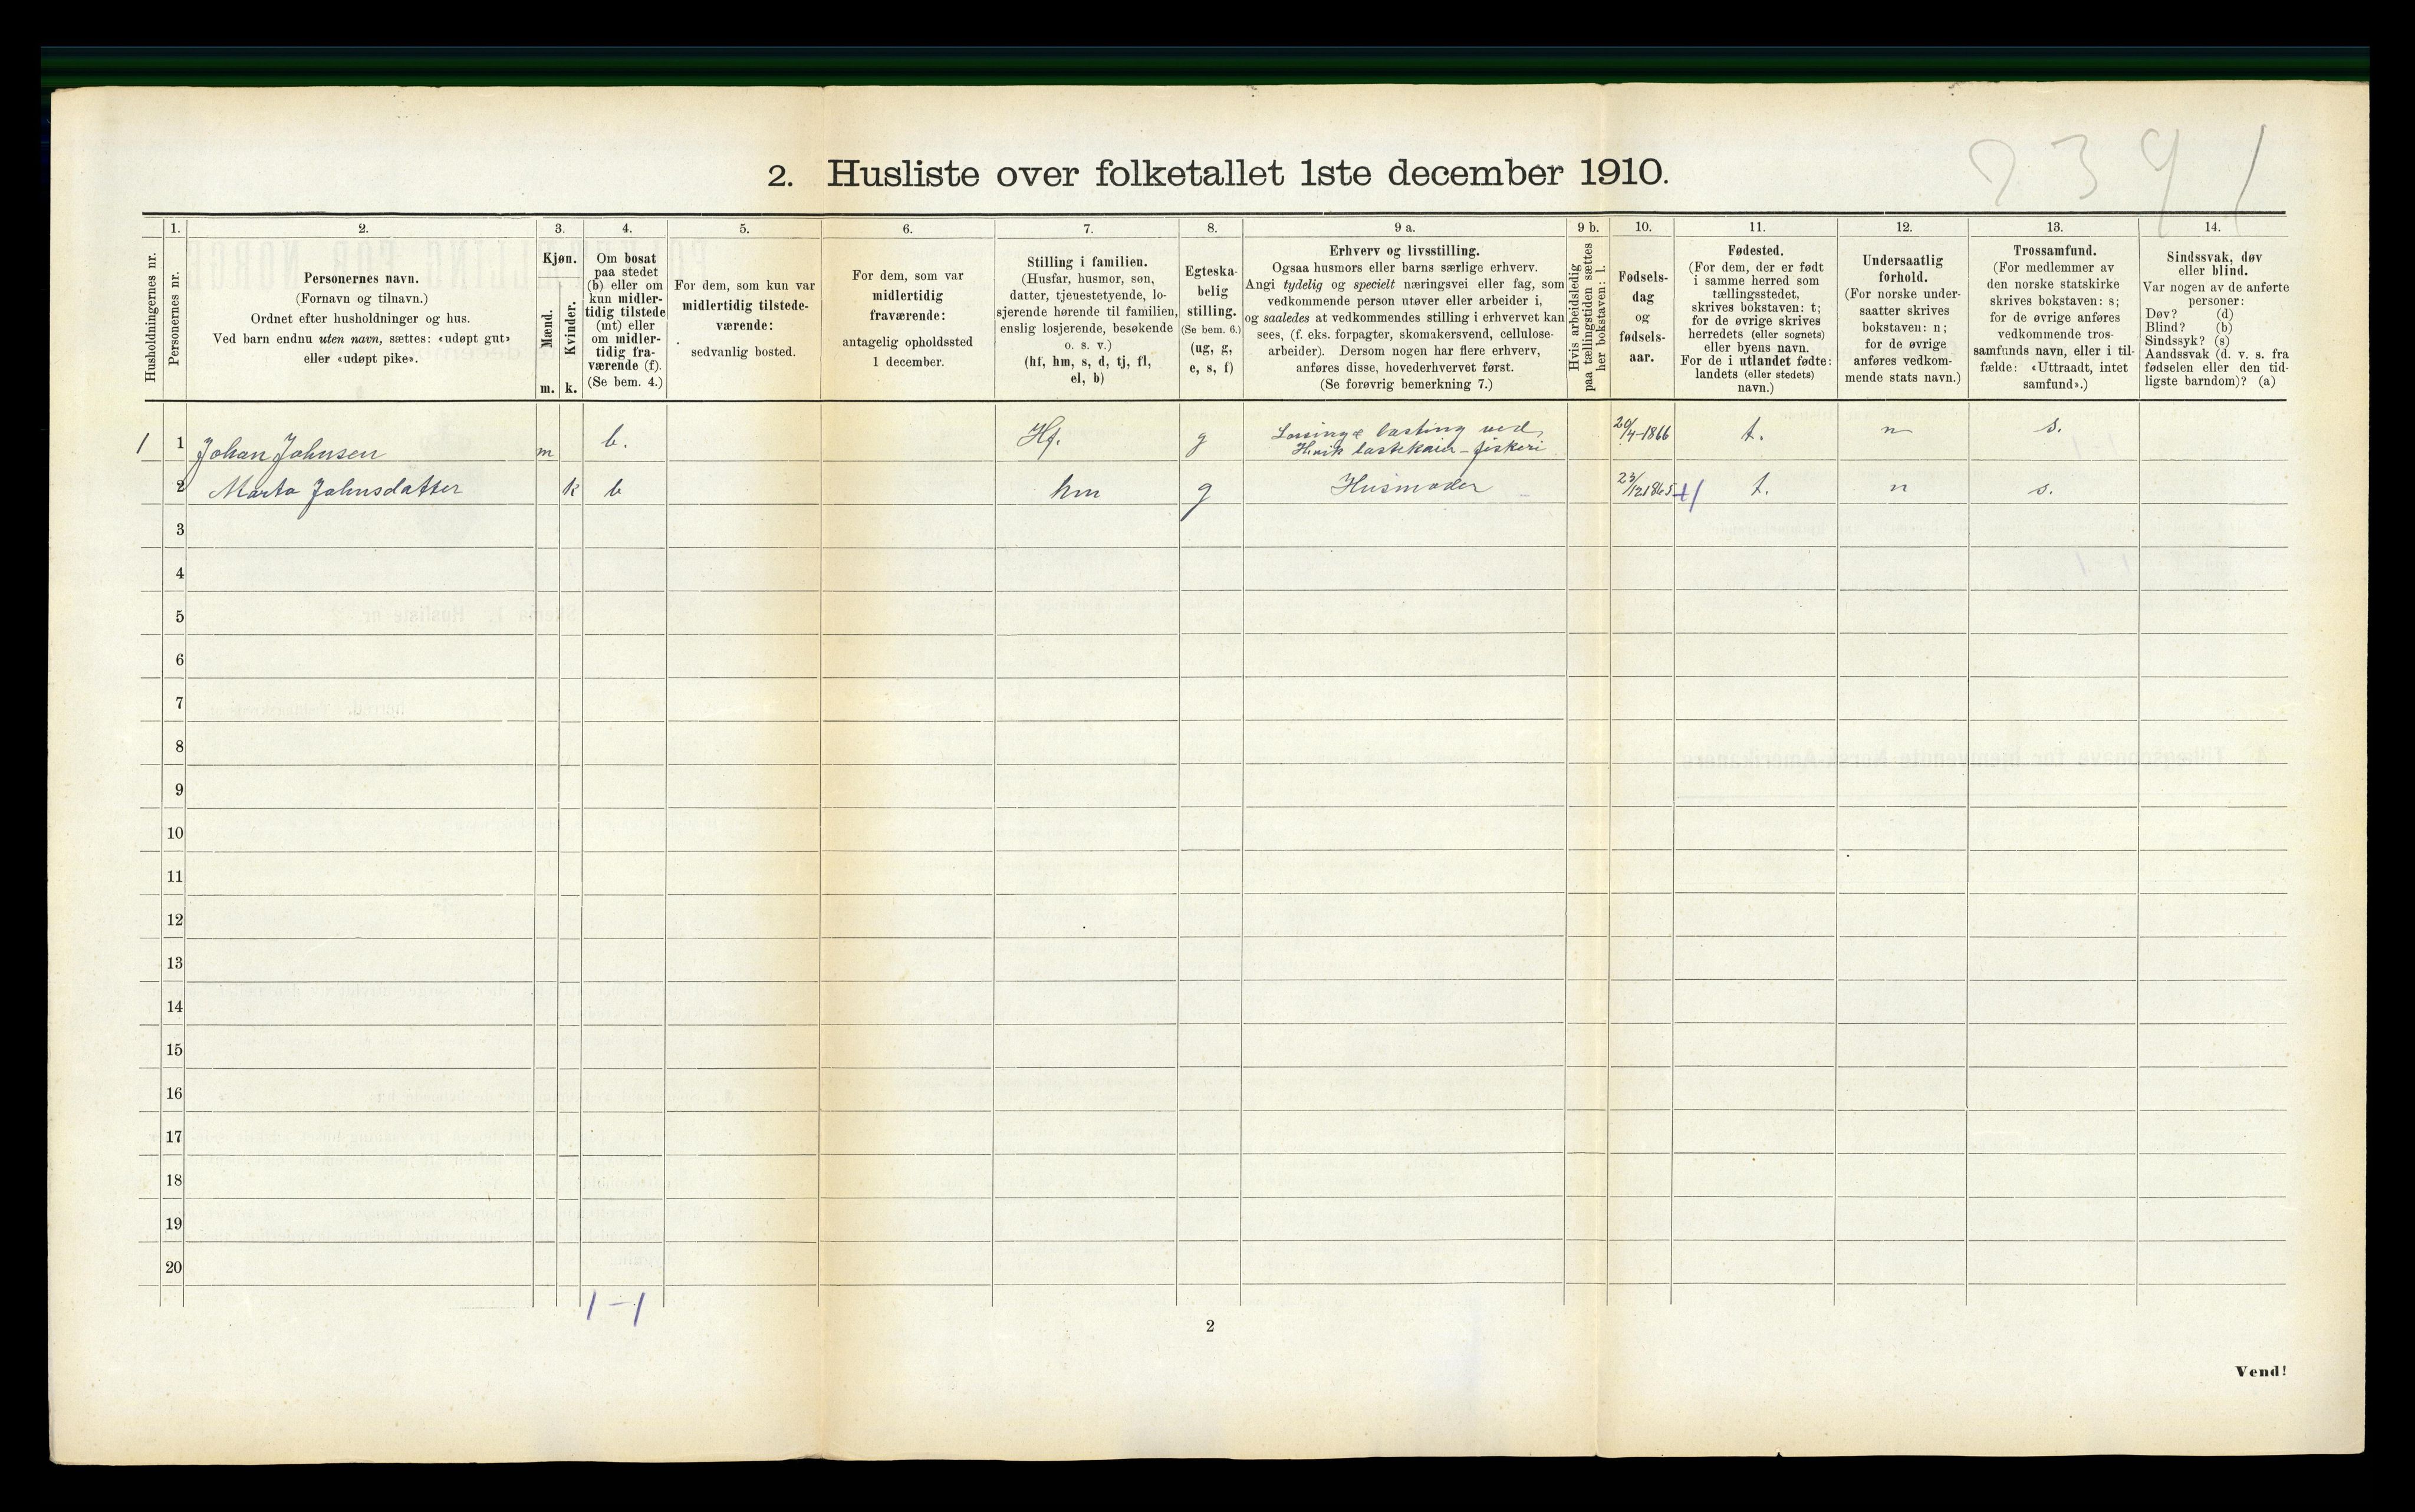 2391
2. Husliste over folketallet 1ste december 1910.
Husholdningernes nr.
1.
Personernes nr.
2.
Personernes navn.
(Fornavn og tilnavn.)
Ordnet efter husholdninger og hus.
Ved barn endnu uten navn, sættes: «udøpt gut»
eller «udøpt pike».
3.
Kjøn.
Mænd.
m.
Kvinder.
k.
4.
Om bosat
paa stedet
(b) eller om
kun midler-
tidig tilstede
(mt) eller
om midler-
tidig fra-
værende (f).
(Se bem. 4.)
5.
For dem, som kun var
midlertidig tilstede-
værende:
sedvanlig bosted.
6.
For dem, som var
midlertidig
fraværende:
antagelig opholdssted
1 december.
7.
Stilling i familien.
(Husfar, husmor, søn,
datter, tjenestetyende, lo-
sjerende hørende til familien,
enslig losjerende, besøkende
o. s. v.)
(hf, hm, s, d, tj, fl,
el, b)
8.
Egteska-
belig
stilling.
(Se bem. 6.)
(ug, g,
e, s, f)
9 a.
Erhverv og livsstilling.
Ogsaa husmors eller barns særlige erhverv.
Angi tydelig og specielt næringsvei eller fag, som
vedkommende person utøver eller arbeider i,
og saaledes at vedkommendes stilling i erhvervet kan
sees, (f. eks. forpagter, skomakersvend, cellulose-
arbeider). Dersom nogen har flere erhverv,
anføres disse, hovederhvervet først.
(Se forøvrig bemerkning 7.)
9 b.
Hvis arbeidsledig
paa tællingstiden sættes
her bokstaven: l.
10.
Fødsels-
dag
og
fødsels-
aar.
11.
Fødested.
(For dem, der er født
i samme herred som
tællingsstedet,
skrives bokstaven: t;
for de øvrige skrives
herredets (eller sognets)
eller byens navn.
For de i utlandet fødte:
landets (eller stedets)
navn.)
12.
Undersaatlig
forhold.
(For norske under-
saatter skrives
bokstaven: n;
for de øvrige
anføres vedkom-
mende stats navn.)
13.
Trossamfund.
(For medlemmer av
den norske statskirke
skrives bokstaven: s;
for de øvrige anføres
vedkommende tros-
samfunds navn, eller i til-
fælde: «Uttraadt, intet
samfund».)
14.
Sindssvak, døv
eller blind.
Var nogen av de anførte
personer:
Døv? (d)
Blind? (b)
Sindssyk? (s)
Aandssvak (d. v. s. fra
fødselen eller den tid-
ligste barndom)? (a)
1 1 Johan Johnsen m b. Hf. g lasting ved 20/4-1866 t. n s.
lastekaier - fiskeri
2 Marta Johnsdatter k b hm g Husmoder 23/12 1865 t. n s.
3
4
5
6
7
8
9
10
11
12
13
14
15
16
17
18
19
20
1-1
2
Vend!